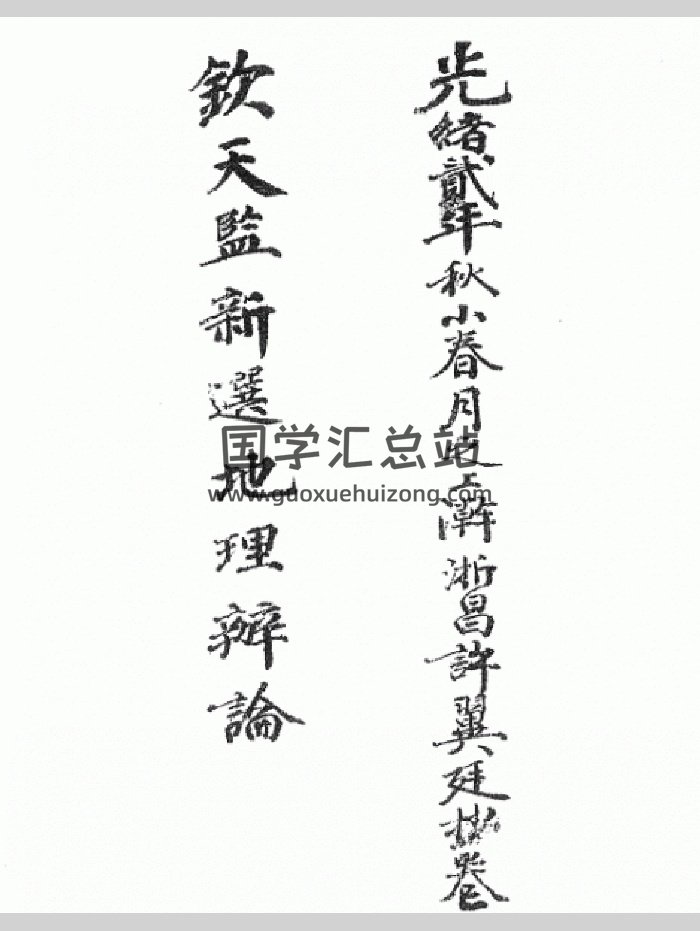 光緒貳年秋小春月 上澣浙昌許翼廷 卷
欽天監新選地理辦論
国学汇总站
www.guoxuehuizong.com